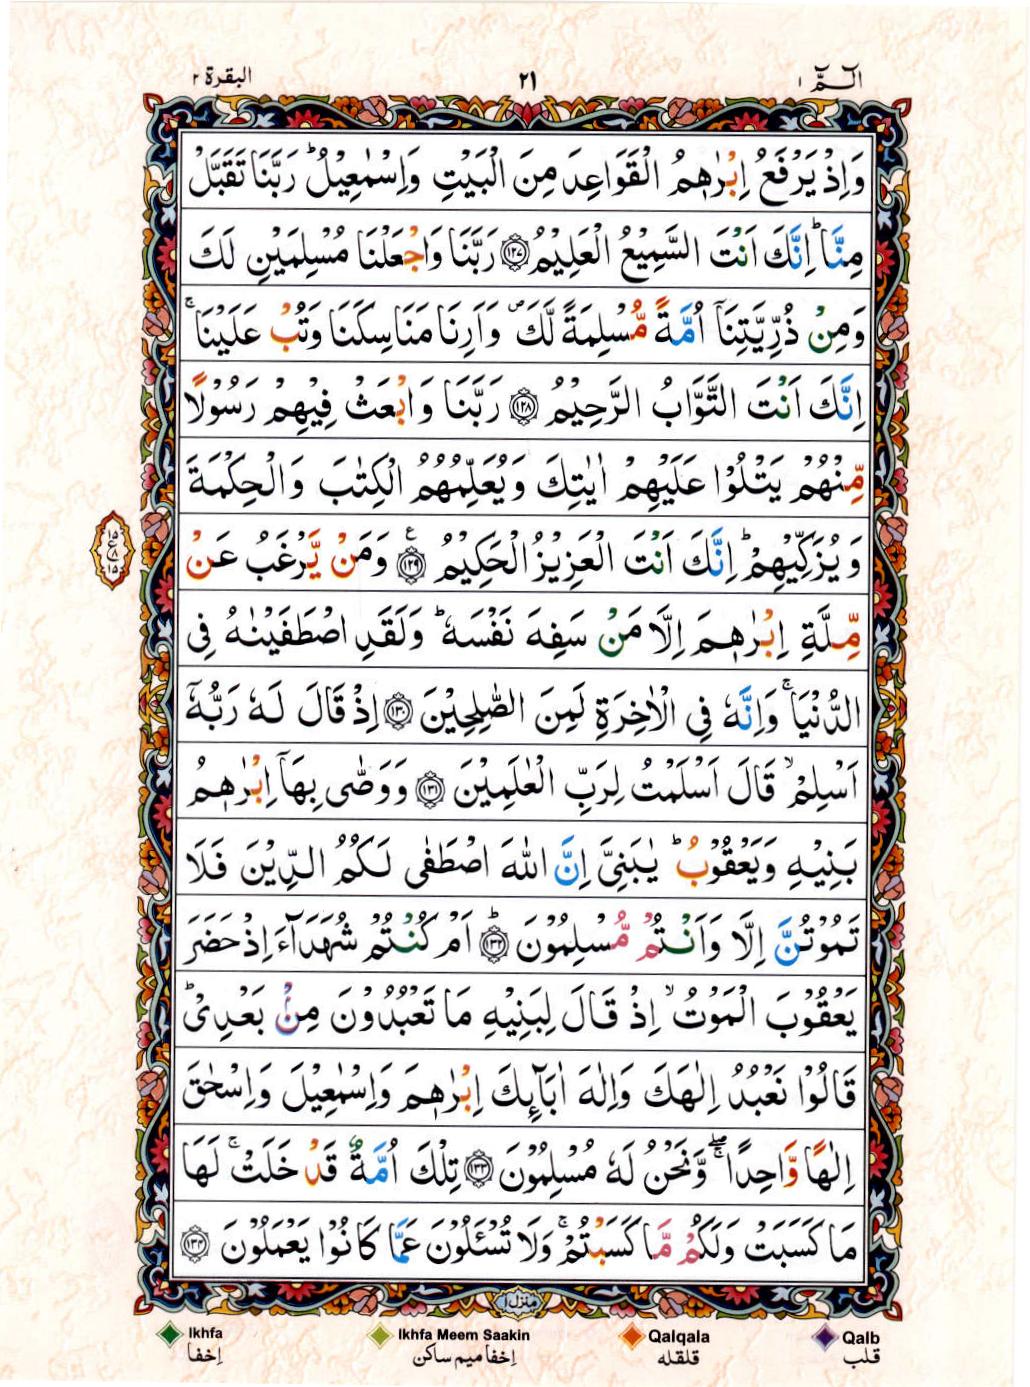 الٓـمّٓ ١
٢١
البقرة ٢
وَاِذْ يَرْفَعُ اِبْرٰهٖمُ الْقَوَاعِدَ مِنَ الْبَيْتِ وَاِسْمٰعِيْلُ ؕ رَبَّنَا تَقَبَّلْ
مِنَّا ؕ اِنَّكَ اَنْتَ السَّمِيْعُ الْعَلِيْمُ ﴿۱۲۷﴾ رَبَّنَا وَاجْعَلْنَا مُسْلِمَيْنِ لَكَ
وَمِنْ ذُرِّيَّتِنَاۤ اُمَّةً مُّسْلِمَةً لَّكَ ۪ وَاَرِنَا مَنَاسِكَنَا وَتُبْ عَلَيْنَا ۚ
اِنَّكَ اَنْتَ التَّوَّابُ الرَّحِيْمُ ﴿۱۲۸﴾ رَبَّنَا وَابْعَثْ فِيْهِمْ رَسُوْلًا
مِّنْهُمْ يَتْلُوْا عَلَيْهِمْ اٰيٰتِكَ وَيُعَلِّمُهُمُ الْكِتٰبَ وَالْحِكْمَةَ
وَيُزَكِّيْهِمْ ؕ اِنَّكَ اَنْتَ الْعَزِيْزُ الْحَكِيْمُ ﴿۱۲۹﴾ وَمَنْ يَّرْغَبُ عَنْ
۱۵ ع ۸ ۱۵
مِّلَّةِ اِبْرٰهٖمَ اِلَّا مَنْ سَفِهَ نَفْسَهٗ ؕ وَلَقَدِ اصْطَفَيْنٰهُ فِى
الدُّنْيَا ۚ وَاِنَّهٗ فِى الْاٰخِرَةِ لَمِنَ الصّٰلِحِيْنَ ﴿۱۳۰﴾ اِذْ قَالَ لَهٗ رَبُّهٗۤ
اَسْلِمْ ۙ قَالَ اَسْلَمْتُ لِرَبِّ الْعٰلَمِيْنَ ﴿۱۳۱﴾ وَوَصّٰى بِهَاۤ اِبْرٰهٖمُ
بَنِيْهِ وَيَعْقُوْبُ ؕ يٰبَنِىَّ اِنَّ اللّٰهَ اصْطَفٰى لَكُمُ الدِّيْنَ فَلَا
تَمُوْتُنَّ اِلَّا وَاَنْتُمْ مُّسْلِمُوْنَ ؕ﴿۱۳۲﴾ اَمْ كُنْتُمْ شُهَدَآءَ اِذْ حَضَرَ
يَعْقُوْبَ الْمَوْتُ ۙ اِذْ قَالَ لِبَنِيْهِ مَا تَعْبُدُوْنَ مِنْۢ بَعْدِىْ ؕ
قَالُوْا نَعْبُدُ اِلٰهَكَ وَاِلٰهَ اٰبَآئِكَ اِبْرٰهٖمَ وَاِسْمٰعِيْلَ وَاِسْحٰقَ
اِلٰهًا وَّاحِدًا ۖۚ وَّنَحْنُ لَهٗ مُسْلِمُوْنَ ﴿۱۳۳﴾ تِلْكَ اُمَّةٌ قَدْ خَلَتْ ۚ لَهَا
مَا كَسَبَتْ وَلَكُمْ مَّا كَسَبْتُمْ ۚ وَلَا تُسْئَلُوْنَ عَمَّا كَانُوْا يَعْمَلُوْنَ ﴿۱۳۴﴾
منزل ۱
Ikhfa
اِخفا
Ikhfa Meem Saakin
اِخفا میم ساکن
Qalqala
قلقله
Qalb
قلب